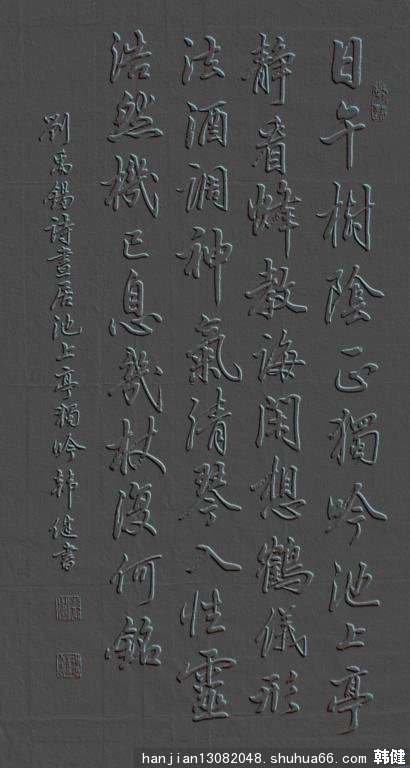 日午樹陰正獨吟池上亭
靜看蜂教誨閑想鶴儀形
法酒調神氣清琴入性靈
浩然機已息幾杖復何銘
劉禹錫詩晝居池上亭獨吟韓健書
hanjian13082048.shuhua66.com 韩健